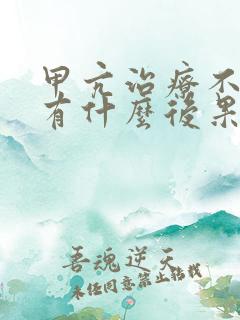 甲亢治療不
有什麼後果
吾魂逆天
未經同意禁止轉載